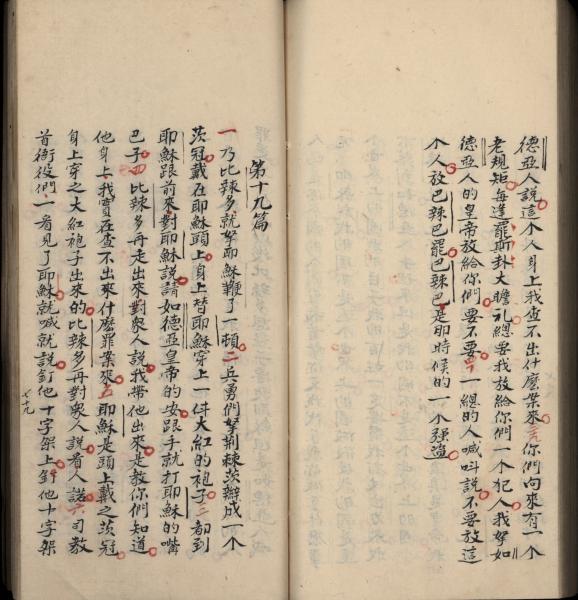 德亞人說這个人身上我查不出什麼罪案來三九你們向來有一个
老規矩每逢罷斯卦大瞻礼總要我放給你們一个犯人我拏如
德亞人的皇帝放給你們要不要四十一總的人喊呌說不要放這
个人放巴辣巴罷巴辣巴是即時候的一个强盜
第十九篇
一乃比辣多就拏耶穌鞭了一頓二兵勇們拏荊棘茨辮成一个
茨冠戴在耶穌頭上身上替耶穌穿上一件大紅的袍子三都到
耶穌跟前來對耶穌說請如德亞皇帝的安跟手就打耶穌的嘴
巴子四比辣多再走出來對衆人說我帶他出來是教你們知道
他身上我實在查不出來什麼罪案來五耶穌是頭上戴之茨冠
身上穿之大紅袍子出來的比辣多再對衆人說看人諾六司教
首衙役們一看見了耶穌就喊就說釘他十字架上釘他十字架
七十九